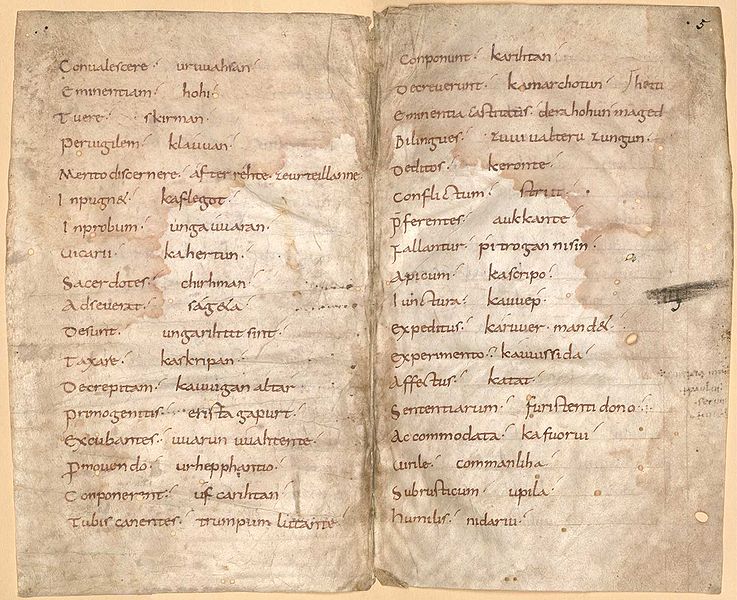 Conualescere· uruuahsan·
Eminentiam· hohi·
Tuere· skirman·
Peruigilem· klauuan·
Merito discernere· after rehte· zeurteillanne·
Inpugnę· kaflegot·
Inprobum· ungauuaran·
Uicarii· kahertun·
Sacerdotes· chirhman·
Adseuerat· sag&a·
Desunt· ungarihtit sint·
Taxare· kaskripan·
Decrepitam· kauuigan altar·
Primogenitus· erista gapurt·
Excubantes· uuarun uuahtente·
P̄mouendo· urhepphantio·
Conponerent· uf carihtan·
Tubis canentes· trumpum
5
Conponunt· karihtan·
Decreuerunt· kamarchotun·
Eminentia &
Bilingues· zuuiualteru zungun·
Deditos· keronte·
Conflictum· strit·
P̄ferentes· aukkante·
Fallantur· pitrogan nisin·
Apicum· kascripo·
Iunctura· kauuep·
Expeditus· karuuer
Experimento· kauuissida·
Affectus· katat·
Sententiarum· furistentidono·
Accommodata· kafuorui·
Uirile· commanliha·
Subrusticum· upila·
Humilis· nidariu·